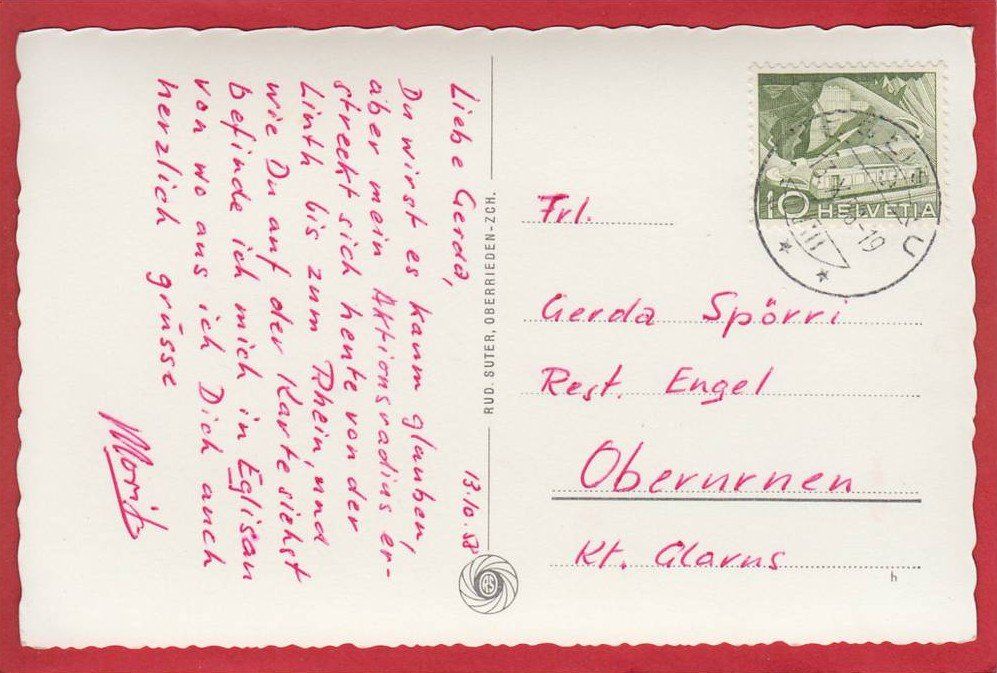 13.10.58
Liebe Gerda,
Du wirst es kaum glauben,
aber mein Aktionsradius er-
streckt sich heute von der
Linth bis zum Rhein, und
wie Du auf der Karte siehst
befinde ich mich in Eglisau
von wo aus ich Dich auch
herzlich grüsse
Moritz
RUD. SUTER, OBERRIEDEN-ZCH.
RS
10 HELVETIA
Frl.
Gerda Spörri
Rest. Engel
Oberurnen
Kt. Glarus
h